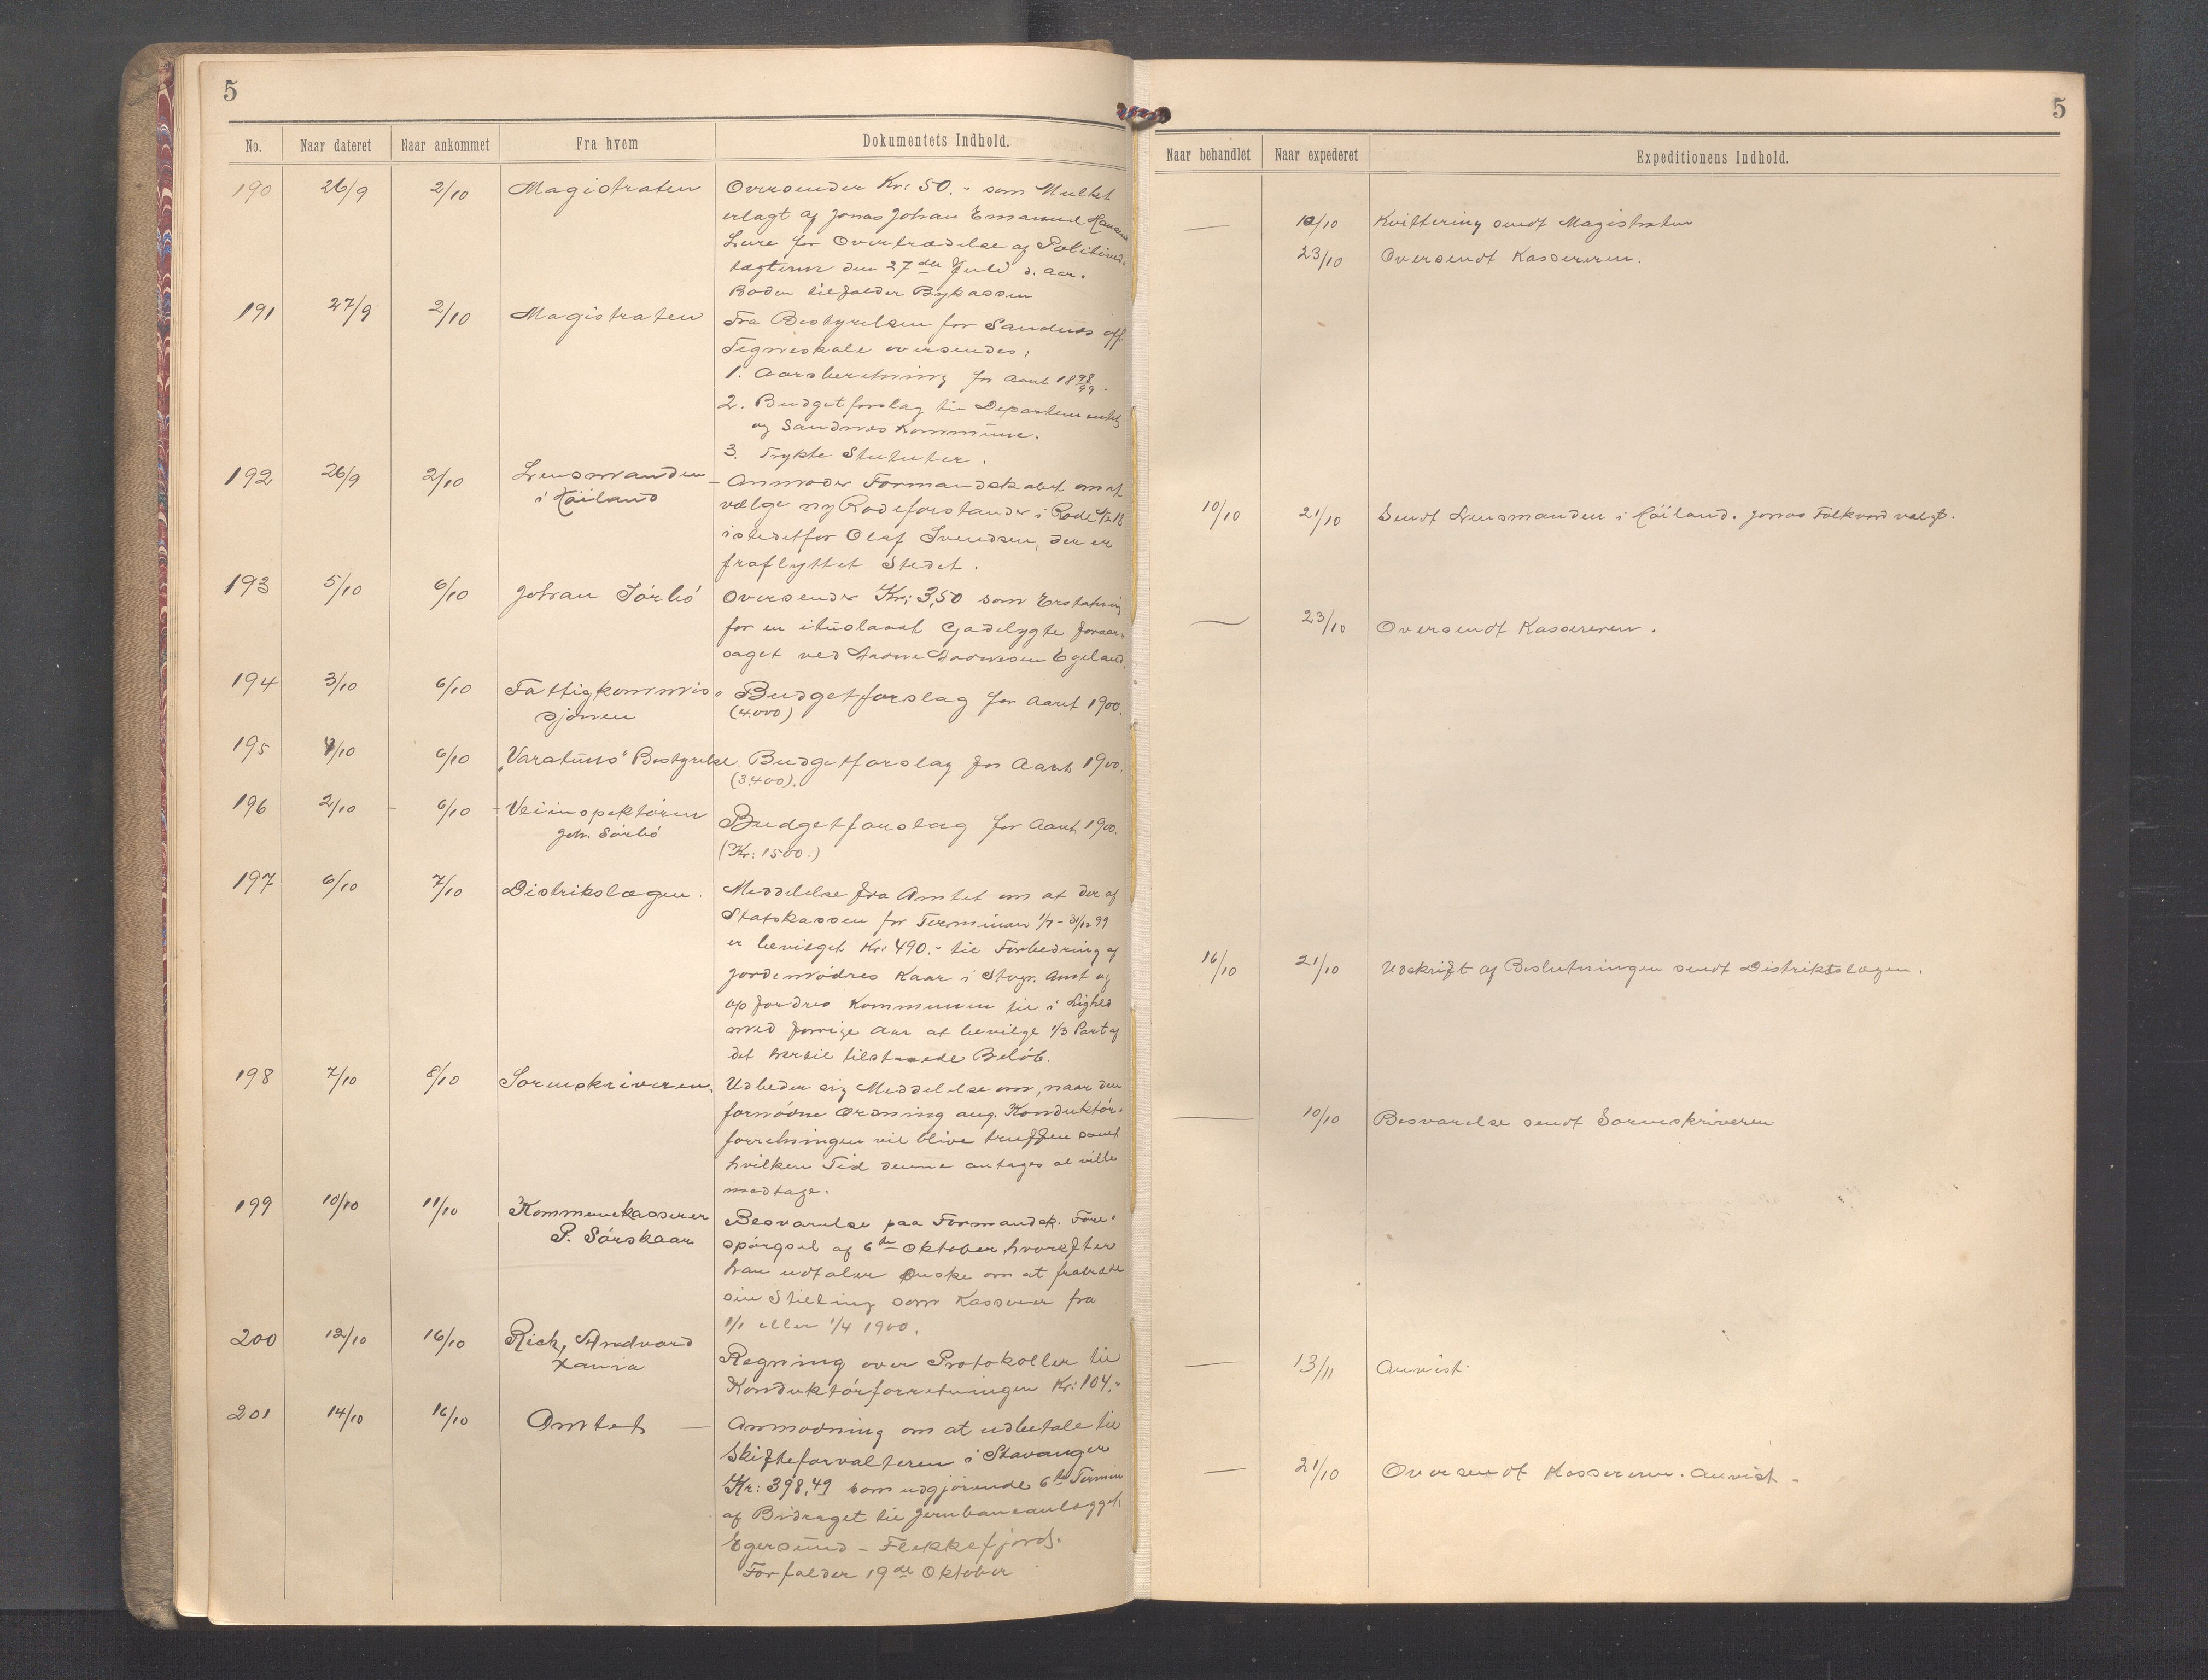 5
No. Naar dateret Naar ankommet Fra hvem Dokumentets Indhold.
190 26/9 2/10 Magistraten Oversender Kr: 50.- som Mulkt
erlagt af Jonas Johan Emanuel Hansen
Lure for Overtrædelse af Politived-
tægterne den 27de Juli d. Aar.
Boden tilfalder Bykassen
191 27/9 2/10 Magistraten Fra Bestyrelsen for Sandnes off.
Tegneskole oversendes;
1. Aarsberetning for Aaret 1898/99.
2. Budgetforslag til Departementet
og Sandnes Kommune.
3. Trykte Statuter.
192 26/9 2/10 Lensmanden - Anmoder Formandskabet om at
i Höiland vælge ny Rodeforstander i Rode
istedetfor Olaf Svendsen, der er
fraflyttet Stedet.
193 5/10 6/10 Johan Sörbö Oversender Kr; 3,50 som Erstatning
for en ituslaaet Gadelygte foraar-
saget ved Egeland.
194 3/10 6/10 Fattigkommis- Budgetforslag for Aaret 1900.
sjonen (4000)
195 4/10 6/10 "Varatuns" Bestyrelse. Budgetforslag for Aaret 1900.
(3,400).
196 2/10 - 6/10 - Veiinspektören Budgetforslag for Aaret 1900.
Joh. Sörbö (Kr: 1500.)
197 6/10 7/10 Distrikslægen. Meddelelse fra Amtet om at der af
Statskassen for Terminen 1/7 - 31/12 99
er bevilget Kr: 490.- til Forbedring af
Jordemödres Kaar i Stvgr. Amt og
opfordres Kommunen til i Lighed
med forrige Aar at bevilge 1/3 Part af
det hertil tilstaaede Belöb.
198 7/10 8/10 Sorenskriveren. Udbeder sig Meddelelse om, naar den
fornödne Ordning ang. Konduktör-
forretningen vil blive truffen samt
hvilken Tid denne antages at ville
medtage.
199 10/10 11/10 Kommunekasserer Besvarelse paa Formandsk. Fore-
P. Sörskaar spörgsel af 6te Oktober, hvorefter
han udtaler Ønske om at fratræde
sin Stilling som Kasserer fra
1/1 eller 1/4 1900.
200 12/10 16/10 Rich, Andvord Regning over Protokoller til
Xania Konduktörforretningen Kr: 104.-
201 14/10 16/10 Amtet - Anmodning om at udbetale til
Skifteforvalteren i Stavanger
Kr: 398,49 som udgjörende 6te Termin
af Bidraget til Jernbaneanlægget
Egersund - Flekkefjord.
Forfalder 19de Oktober
5
Naar behandlet Naar expederet Expeditionens Indhold.
— 12/10 Kvittering sendt Magistraten
23/10 Oversendt Kassereren.
10/10 21/10 Sendt Lensmanden i Höiland. Jonas Folkvord valgt.
— 23/10 Oversendt Kassereren.
16/10 21/10 Udskrift af Beslutningen sendt Distriktslægen.
— 10/10 Besvarelse sendt Sorenskriveren
— 13/11 Anvist.
— 21/10 Oversendt Kassereren. Anvist -